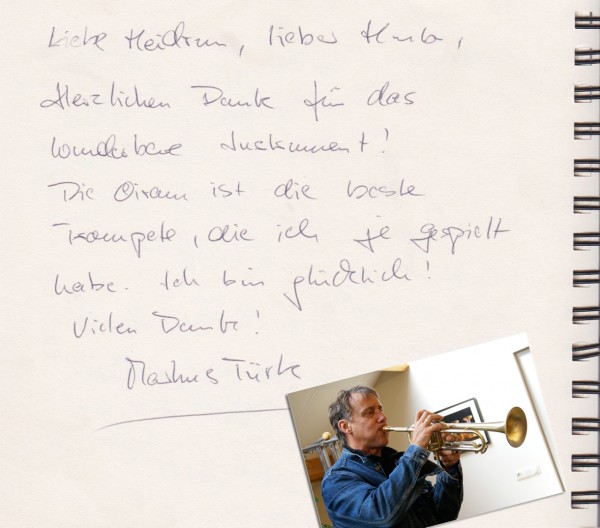 Liebe Heidrun, lieber Hub,
Herzlichen Dank für das
wunderbare Instrument!
Die Oiram ist die beste
Trompete, die ich je gespielt
habe. Ich bin glücklich!
Vielen Dank!
Markus Türk